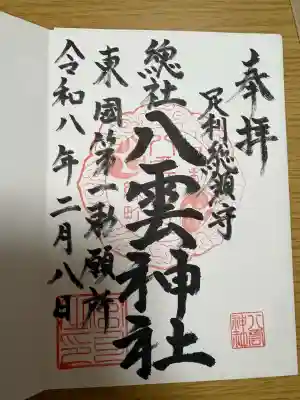 奉拝
足利總鎮守
總社
八雲神社
東國第一勅願所
令和八年二月八日
八雲神社